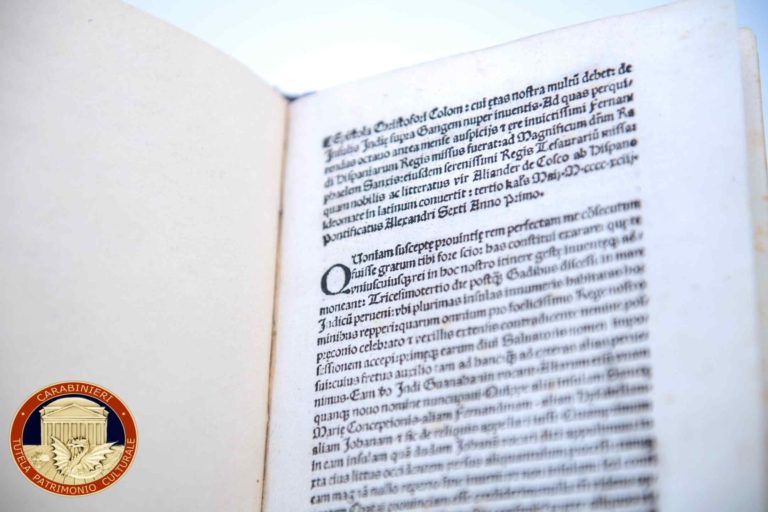 ¶ Epistola Christofori Colom: cui ętas nostra multũ debet: de
Insulis Indię supra Gangem nuper inuentis. Ad quas perqui-
rendas octauo antea mense auspicijs ⁊ ęre inuictissimi Fernani
di Hispaniarum Regis missus fuerat: ad Magnificum dñm Ra
phaelem Sanxis: eiusdem serenissimi Regis Tesaurariũ missa:
quam nobilis ac litteratus vir Aliander de Cosco ab Hispano
ideomate in latinum conuertit: tertio kal's Maij. M.cccc.xciij.
Pontificatus Alexandri Sexti Anno Primo.
Quoniam susceptę prouintię rem perfectam me cõsecutum
fuisse gratum tibi fore scio: has constitui exarare: quę te
vniuscuiusq; rei in hoc nostro itinere gestę inuentęq; ad-
moneant: Tricesimotertio die postq̃ Gadibus discessi in mare
Indicũ perueni: vbi plurimas insulas innumeris habitatas ho-
minibus repperi: quarum omnium pro foelicissimo Rege nostro
pręconio celebrato ⁊ vexillis extensis contradicente nemine pos-
sessionem accepi: primęq; earum diui Saluatoris nomen impo-
sui: cuius fretus auxilio tam ad hanc q̃ ad cęteras alias perue-
nimus. Eam ṽo Indi Guanahanin vocant. Aliarum etiã vnam
quanq; nouo nomine nuncupaui. Quippe aliã insulam Sanctę
Marię Conceptionis. aliam Fernandinam. aliam Hysabellam.
aliam Johanam. ⁊ sic de reliquis appellari iussi.
in eam insulam quã dudum Johanã
xta eius littus occidentem
eam magnã nullo reperto
CARABINIERI
TUTELA PATRIMONIO CULTURALE